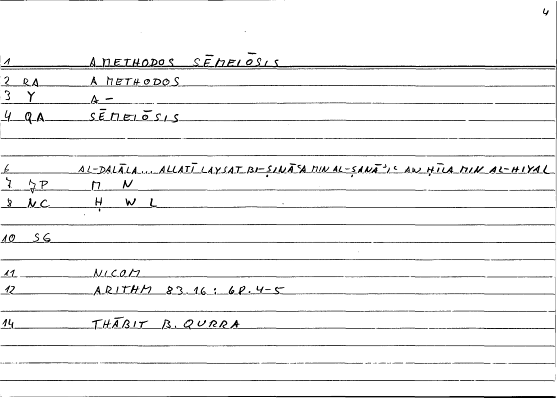 4
1 AMETHODOS SĒMEIŌSIS
2 RA A METHODOS
3 Y A-
4 QA SĒMEIŌSIS
6 AL-DALĀLA... ALLATĪ LAYSAT BI-ṢINĀʿA MIN AL-ṢANĀʾIʿ AW ḤĪLA MIN AL-ḤIYAL
7 P M N
8 NC Ḥ W L
10 SG
11 NICOM
12 ARITHM 83.16: 68.4-5
14 THĀBIT B. QURRA